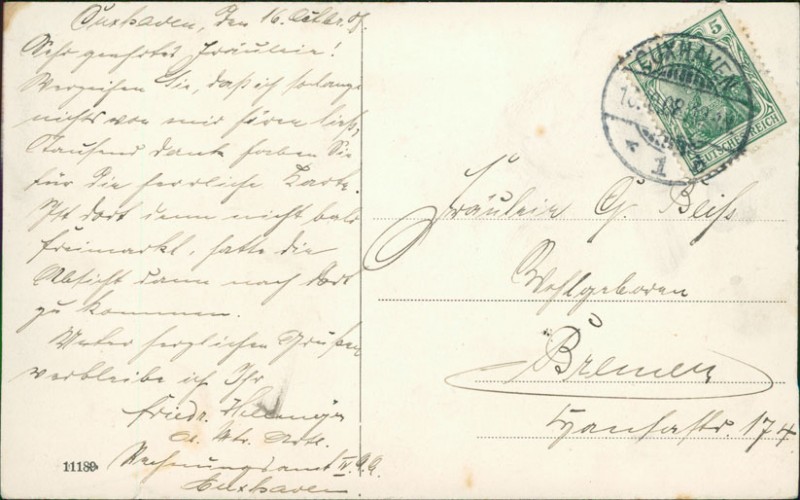 Cuxhaven, den 16. Oktbr. 08.
Sehr geehrtes Fräulein!
Verzeihen Sie, daß ich solange
nichts von mir hören ließ,
Tausend dank haben Sie
für die herrliche Karte.
Ist dort denn nicht bald
Freimarkt, hatte die
Absicht dann nach dort
zu kommen.
Unter herzlichen Grüßen
verbleibe ich Ihr
Friedr.
Cuxhaven.
11189
5
CUXHAVEN
1
DEUTSCHES REICH
Fräulein G. Beiß
Wohlgeboren
Bremen
Hansastr. 174